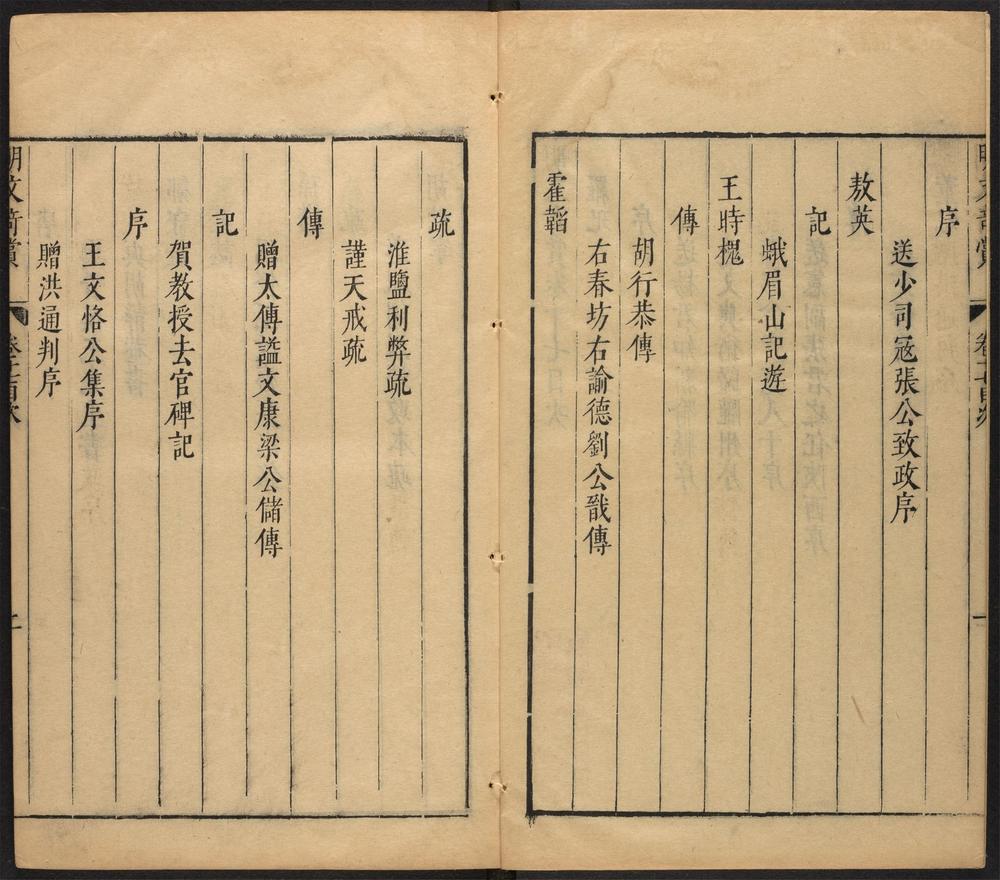 序
送少司寇張公致政序
敖英
記
蛾眉山記遊
王時槐
傳
胡行恭傳
右春坊右諭德劉公戩傳
霍韜
疏
淮鹽利弊疏
謹天戒疏
傳
贈太傅謚文康梁公儲傳
記
賀教授去官碑記
序
王文恪公集序
贈洪通判序